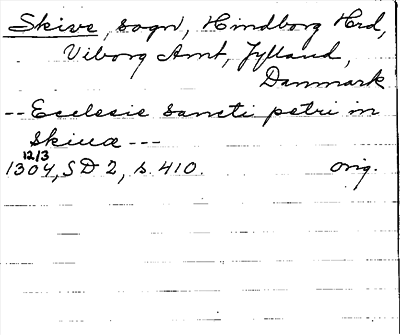 Skive, sogn, Hindborg Hrd,
Viborg Amt, Jylland,
Danmark
-- Ecclesie sancti petri in
skiuæ ---
12/3
1304, SD 2, s. 410. orig.